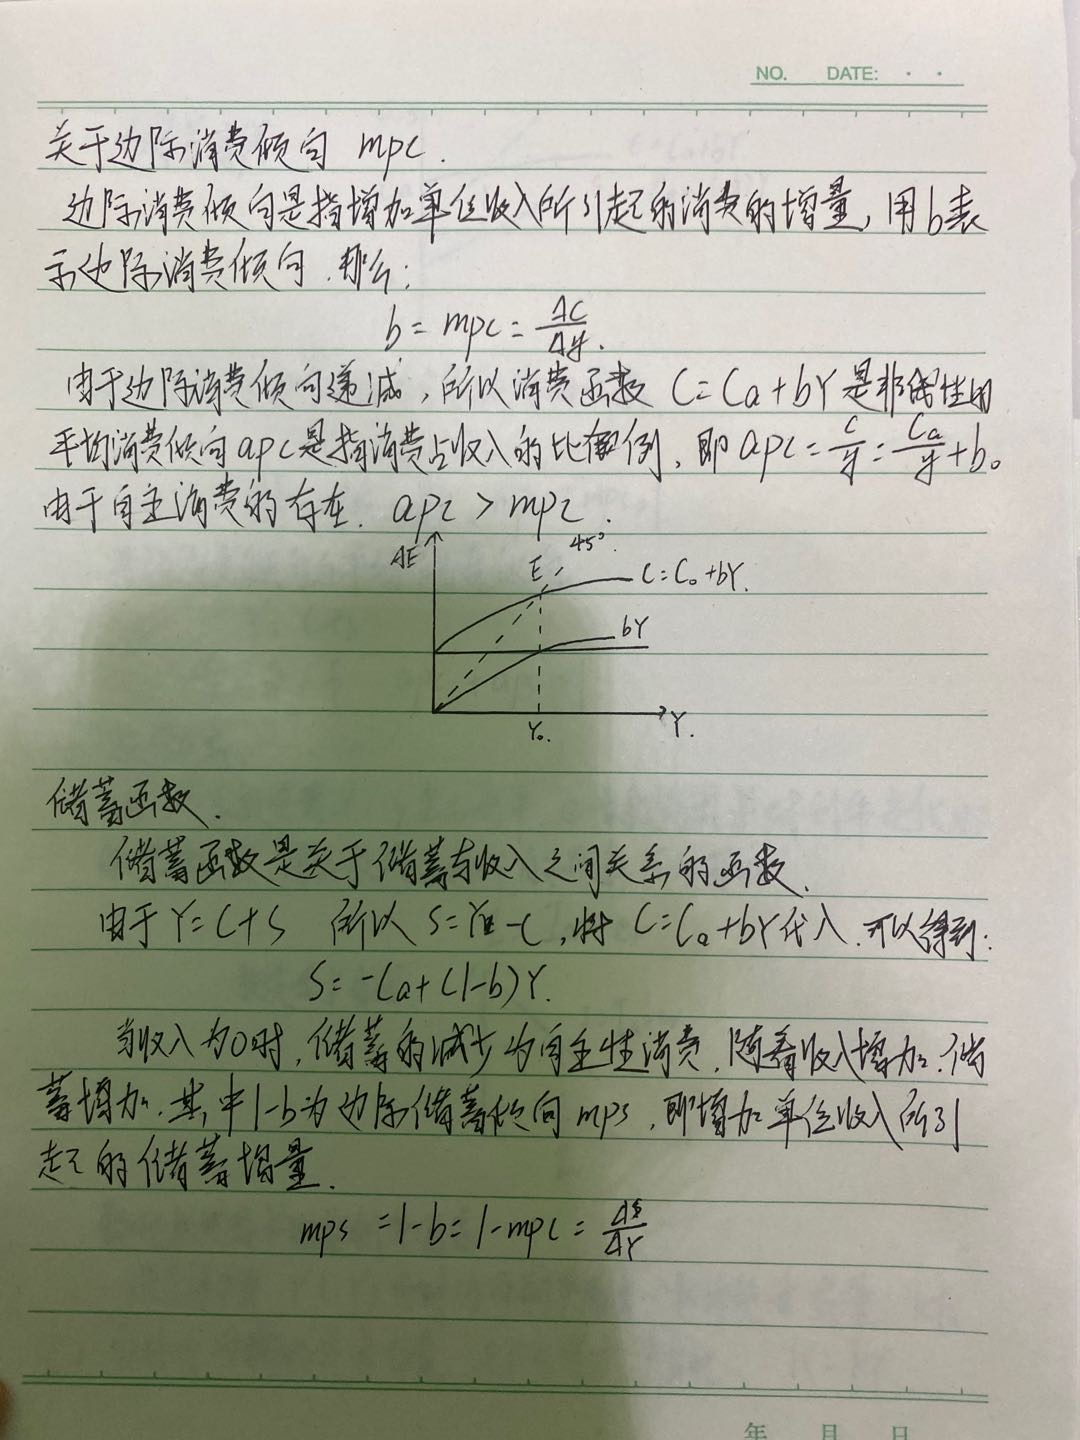 NO. DATE: · ·
关于边际消费倾向 mpc.
边际消费倾向是指增加单位收入所引起的消费的增量, 用b表
示边际消费倾向. 那么:
b = mpc = ΔC/Δy.
由于边际消费倾向递减, 所以消费函数 C=Ca+bY 是非线性的
平均消费倾向apc是指消费占收入的比例, 即apc=C/y=Ca/y+b。
由于自主消费的存在. apc > mpc.
AE
E
45°.
C=C₀+bY.
bY
Y₀.
Y.
储蓄函数.
储蓄函数是关于储蓄与收入之间关系的函数.
由于Y=C+S 所以 S=Y-C, 将 C=Ca+bY代入. 可以得到:
S=-Ca+(1-b)Y.
当收入为0时, 储蓄的减少为自主性消费. 随着收入增加. 储
蓄增加. 其中1-b为边际储蓄倾向 mps. 即增加单位收入所引
起的储蓄增量.
mps =1-b=1-mpc=ΔS/ΔY
年 月 日